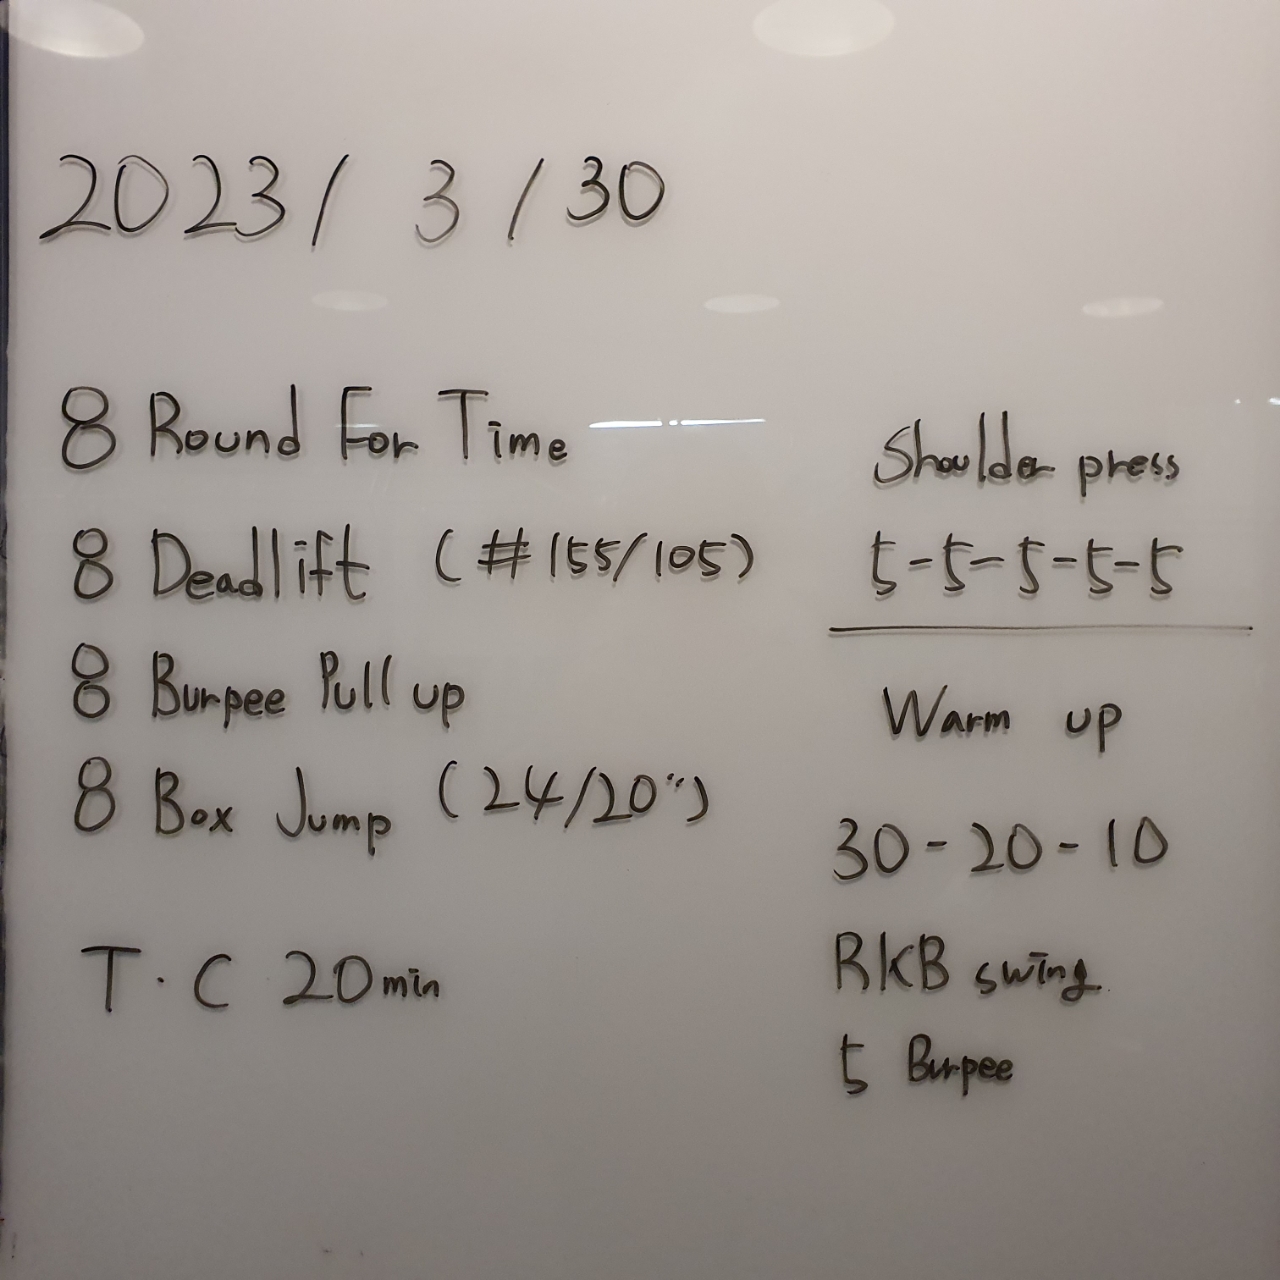 2023/ 3 /30
8 Round For Time
8 Deadlift (#155/105)
8 Burpee Pull up
8 Box Jump (24/20")
T.C 20min
Shoulder press
5-5-5-5-5
Warm up
30-20-10
RKB swing
5 Burpee